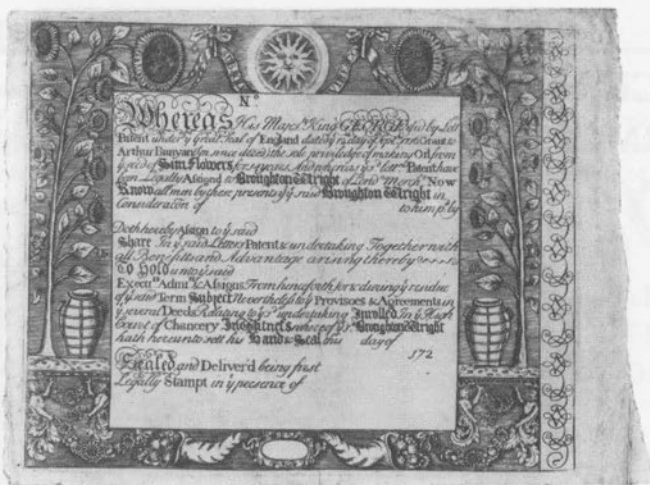 Nº
Whereas His Majesᵗʸ King GEORGE did by Lett
Patent under yᵉ Great Seal of England dated yᵉ day of Grant to
Arthur Bunyan since deceasd the sole priviledge of making Oyl from
yᵉ seed of Sun Flowers for years And whereas yᵉ Patent have
been Legally Assignd to Broughton Wright of Lond Merchᵗ Now
Know all men by these presents yᵗ yᵉ said Broughton Wright in
Consideration of to him pᵈ by
Doth hereby Assign to yᵉ said
Share In yᵉ said Letters Patent & undertaking Together with
all Benefitts and Advantage arising thereby
To Hold unto yᵉ said
Execuᵗˢ Admᵗˢ & Assigns From henceforth for & during yᵉ residue
of yᵉ said Term Subject Nevertheless to yᵉ Provisoes & Agreements in
yᵉ several Deeds Relating to yᵉ undertaking Inrolled In yᵉ High
Court of Chancery In Witness whereof yᵉ sᵈ Broughton Wright
hath hereunto sett his Hand & Seal this day of
172
Sealed and Deliver'd being first
Legally Stampt in yᵉ presence of